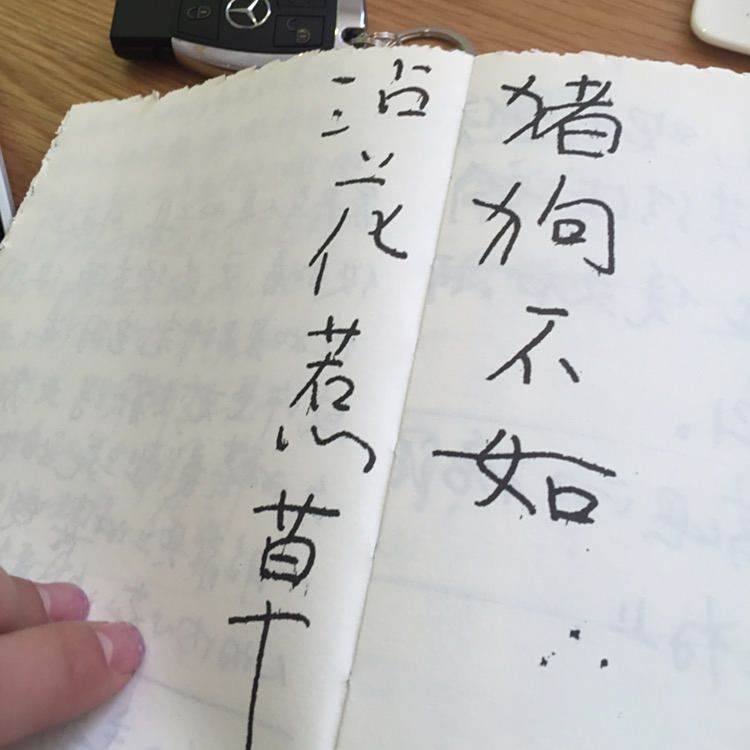 猪狗不如∴
沾花惹草